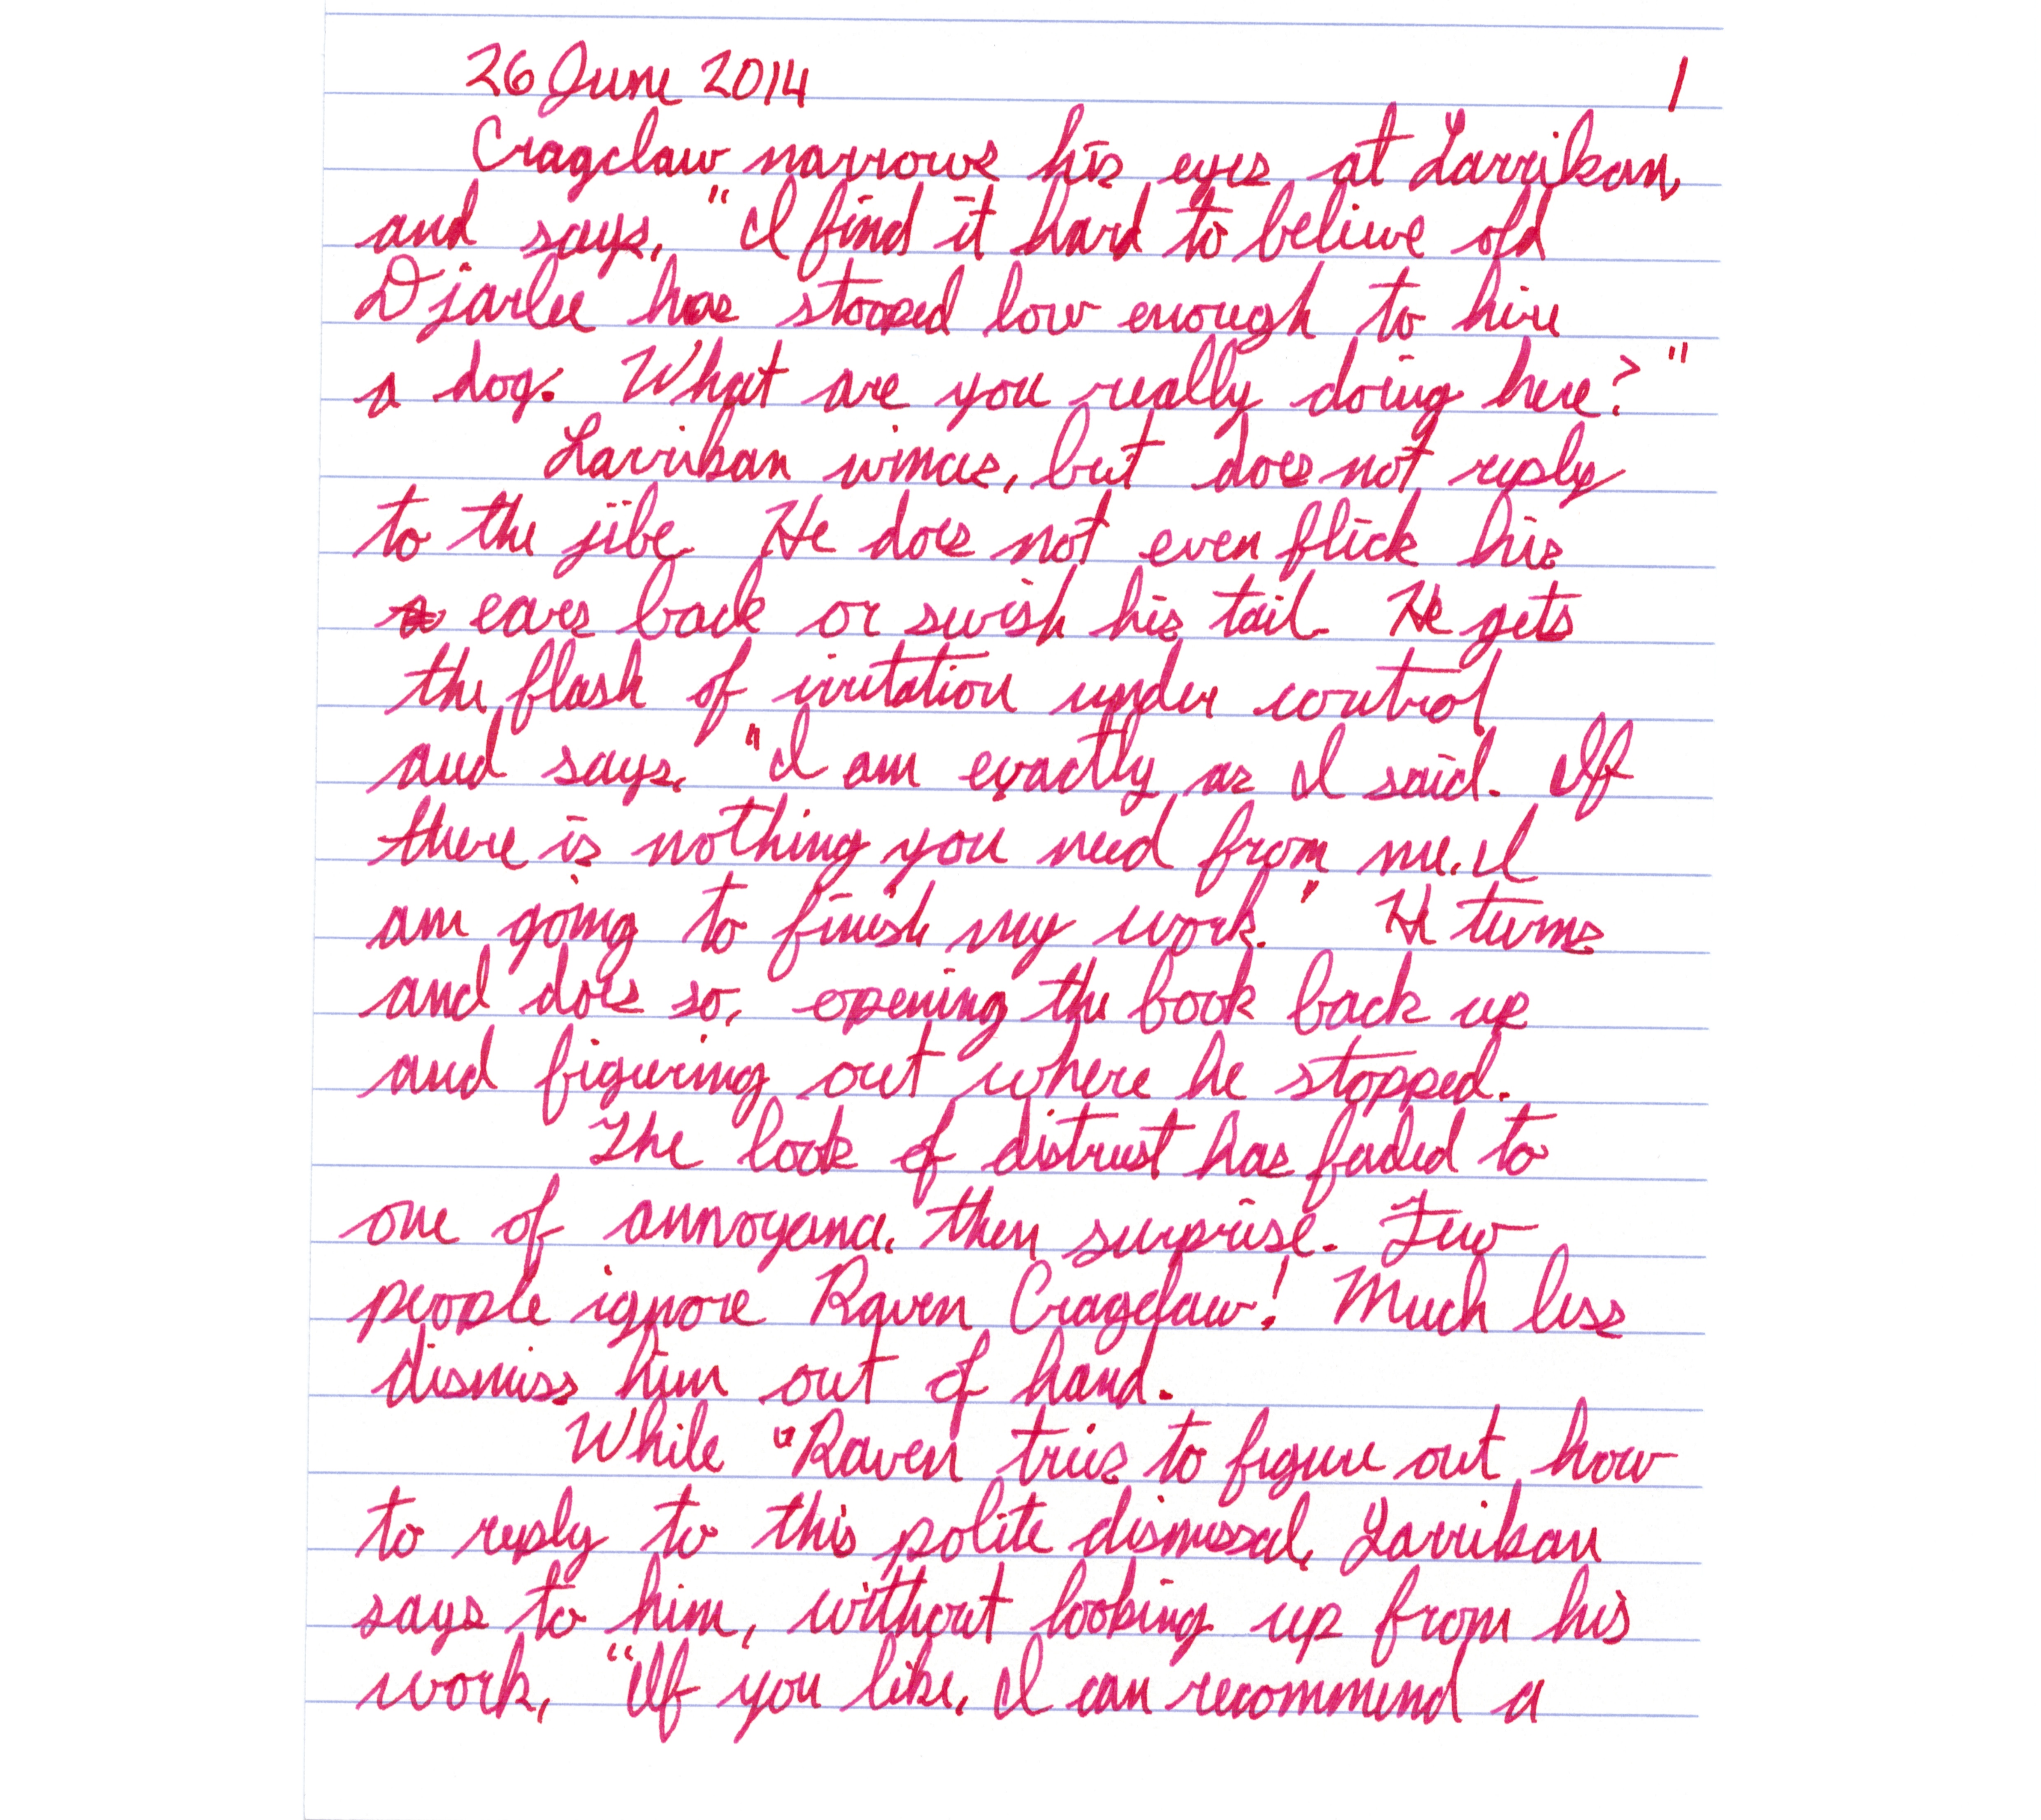 26 June 2014 1
Cragclaw narrows his eyes at Larrikan
and says, "I find it hard to believe old
Djarlee has stooped low enough to hire
a dog. What are you really doing here?"
Larrikan winces, but does not reply
to the jibe. He does not even flick his
ears back or swish his tail. He gets
the flash of irritation under control
and says, "I am exactly as I said. If
there is nothing you need from me, I
am going to finish my work." He turns
and does so, opening the book back up
and figuring out where he stopped.
The look of distrust has faded to
one of annoyance, then surprise. Few
people ignore Raven Cragclaw! Much less
dismiss him out of hand.
While Raven tries to figure out how
to reply to this polite dismissal, Larrikan
says to him, without looking up from his
work, "If you like, I can recommend a